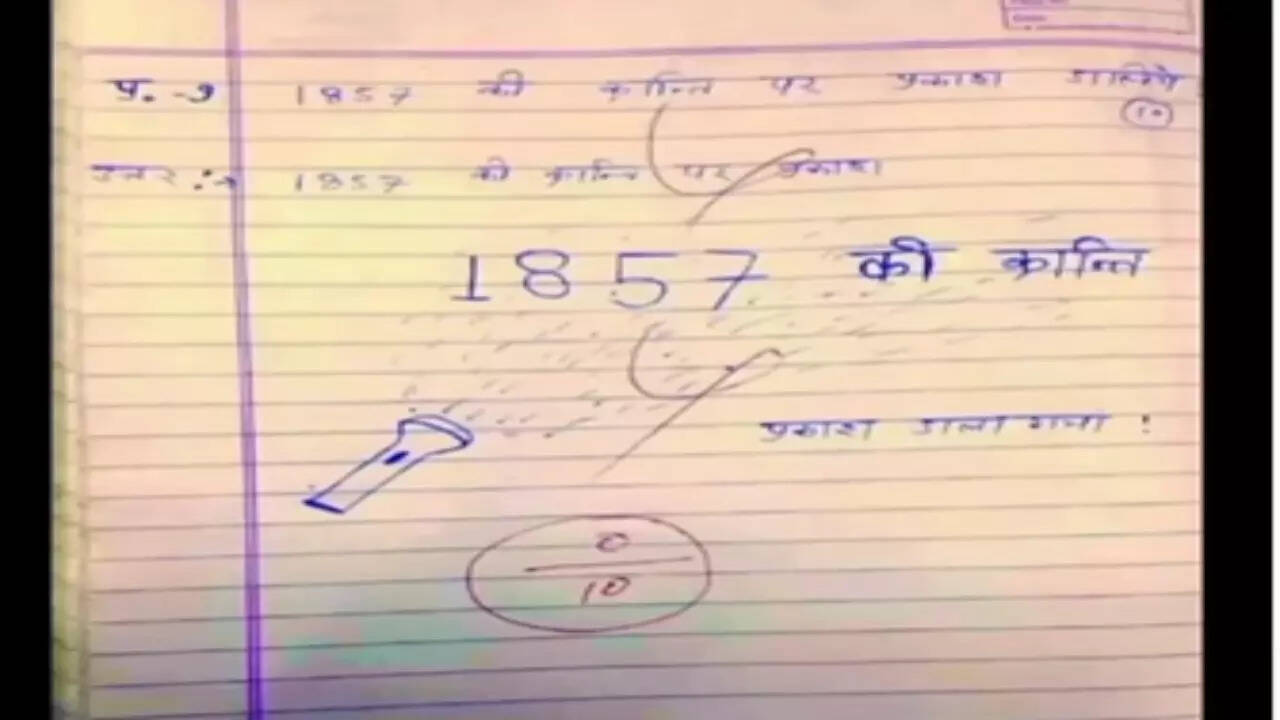 प्र. -9 1857 की क्रान्ति पर प्रकाश डालिये
10
उत्तर :→ 1857 की क्रान्ति पर प्रकाश
1857 की क्रान्ति
प्रकाश डाला गया !
0
10